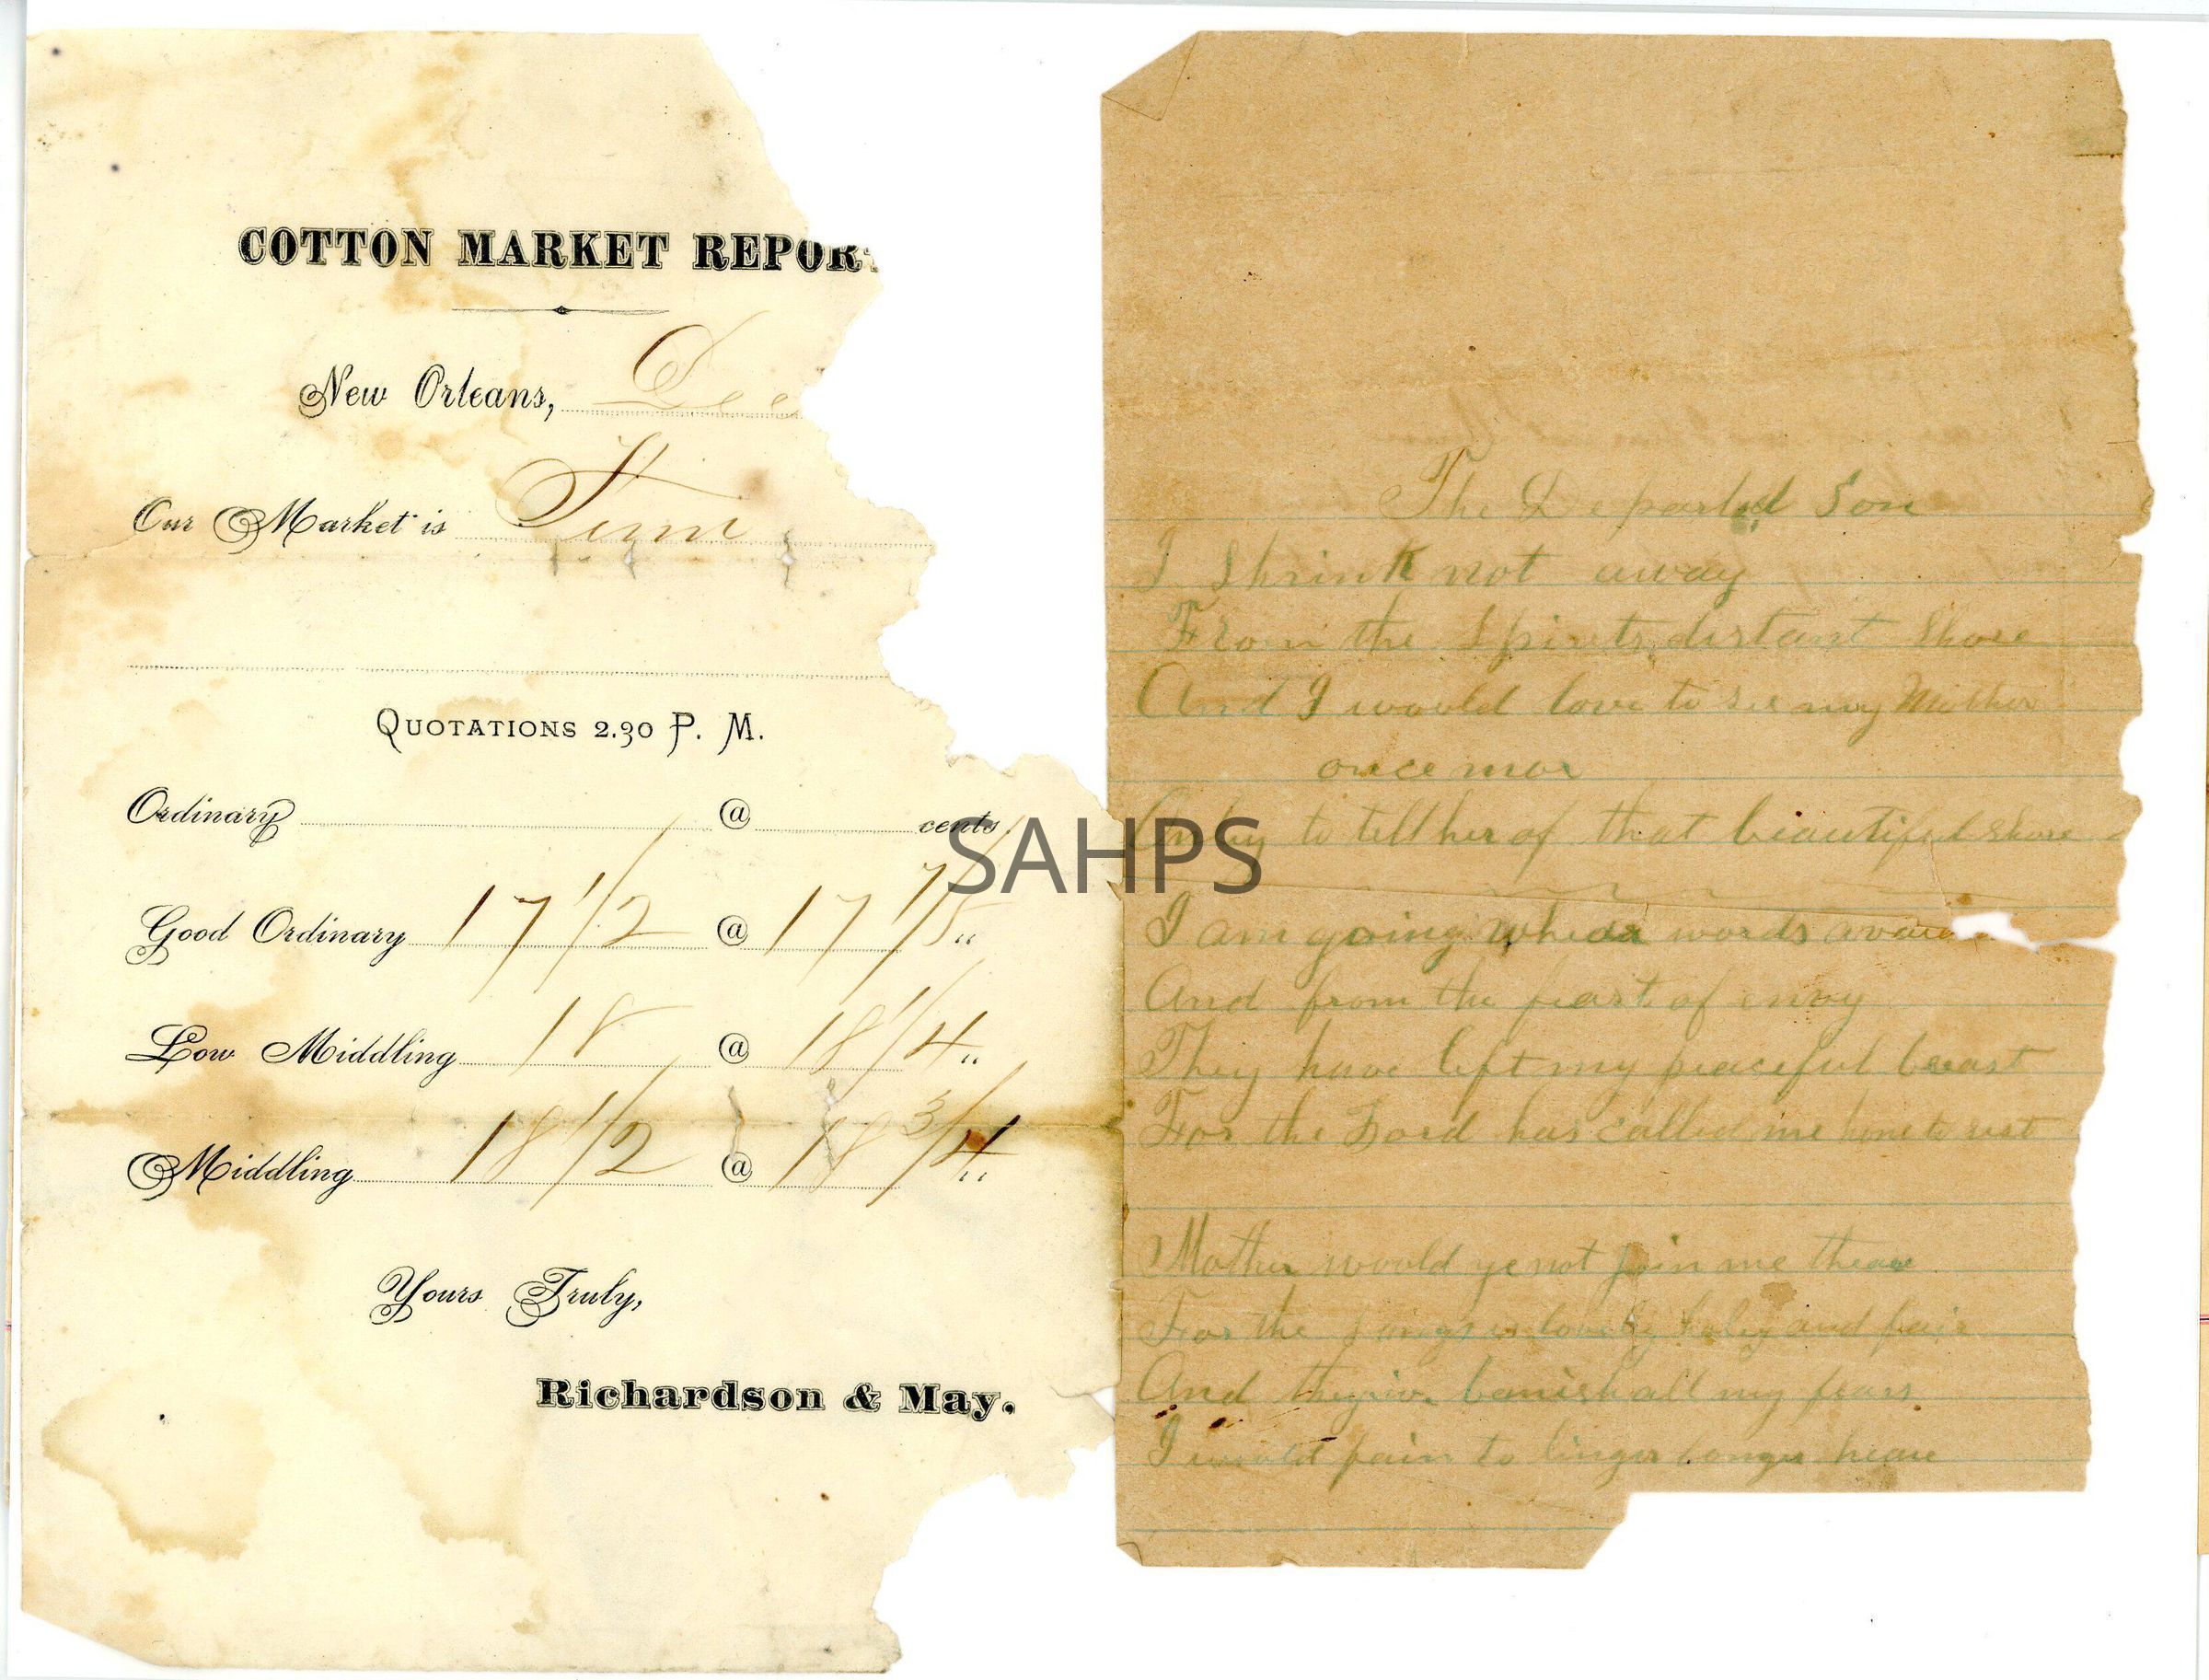 COTTON MARKET REPOR
New Orleans, Dec
Our Market is Firm
QUOTATIONS 2.30 P. M.
Ordinary @ cents
Good Ordinary 17 1/2 @ 17 7/8 "
Low Middling 18 @ 18 1/4 "
Middling 18 1/2 @ 18 3/4 "
Yours Truly,
Richardson & May.
SAHPS
The Departed Son
I Shrink not away
From the Spirits distant Shore
And I would love to see my Mother
once mor
to tell her of that beautiful shore
I am going whear words
And from the feast of envy
They have left my peaceful breast
For the Lord has called me home to rest
Mother would ye not join me theare
For the songs is lovely holy and fair
And banish all my fears
I would fain to linger longer heare